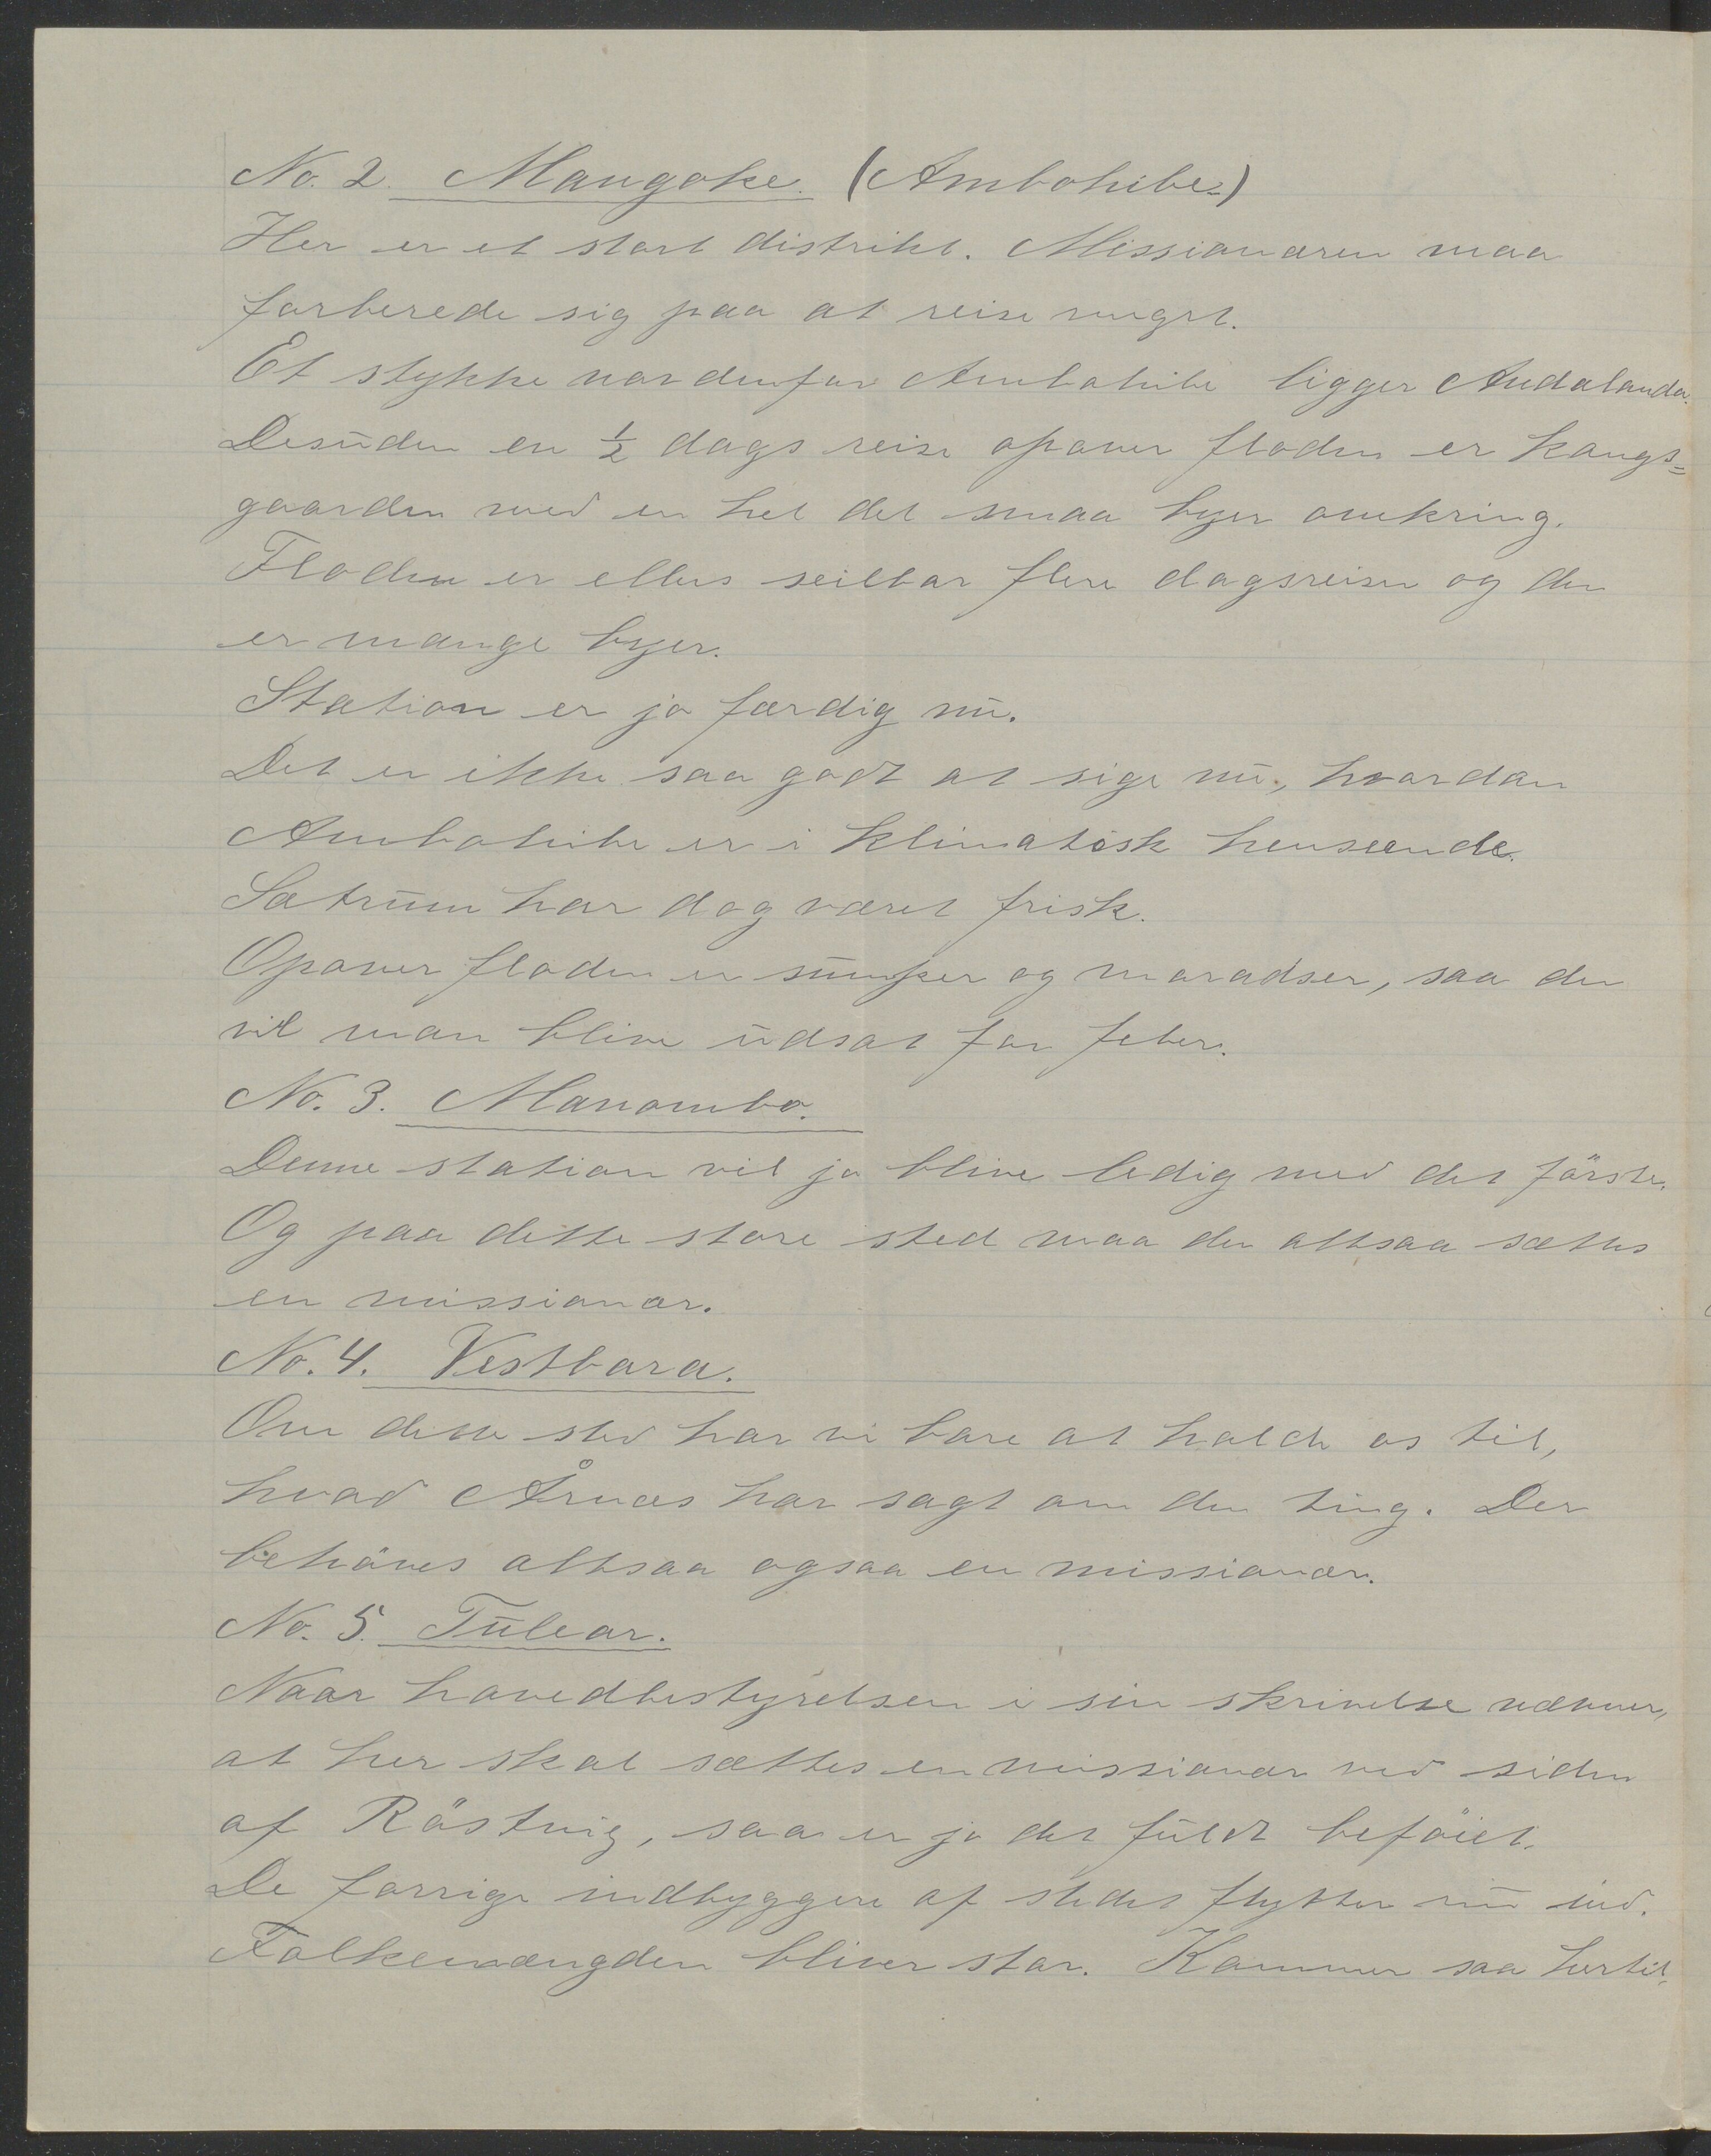 No. 2. Mangoke. (Ambohibe)
Her er et stort distrikt. Missionæren maa
forberede sig paa at reise meget.
Et stykke nordenfor Ambohibe ligger Andalanda.
Desuden en ½ dags reise opover floden er kongs=
gaarden med en hel del smaa byer omkring.
Floden er ellers seilbar flere dagsreiser og der
er mange byer.
Station er jo færdig nu.
Det er ikke saa godt at sige nu, hvordan
Ambohibe er i klimatisk henseende.
Sætrum har dog været frisk.
Opover floden er sumper og moradser, saa der
vil man blive udsat for feber.
No. 3. Manombo.
Denne station vil jo blive ledig med det förste.
Og paa dette store sted maa der altsaa sættes
en missionær.
No. 4. Vestbara.
Om dette sted har vi bare at holde os til,
hvad Årnæs har sagt om den ting. Der
behöves altsaa ogsaa en missionær.
No. 5. Tulear.
Naar hovedbestyrelsen i sin skrivelse nævner,
at her skal sættes en missionær ved siden
af Röstvig, saa er jo det fuldt beföiet.
De forrige indbyggere af stedet flytter nu ind.
Folkemængden bliver stor. Kommer saa hertil,